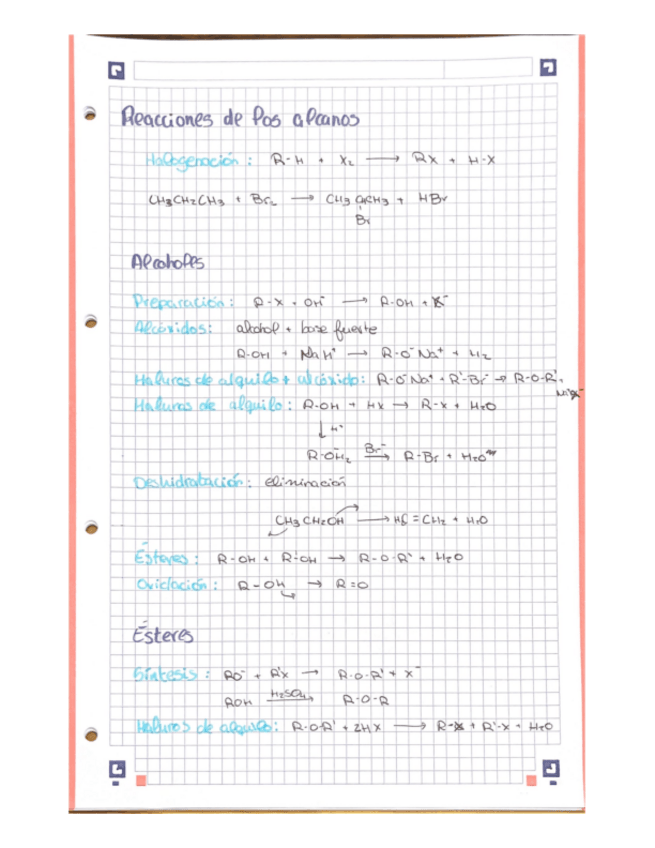 Reacciones de los alcanos
Halogenación : R-H + X₂ ⟶ RX + H-X
CH₃CH₂CH₃ + Br₂ ⟶ CH₃CHCH₃ + HBr
Br
Alcoholes
Preparación : R-X + OH⁻ ⟶ R-OH + X⁻
Alcóxidos: alcohol + base fuerte
R-OH + NaH ⟶ R-O⁻Na⁺ + H₂
Haluros de alquilo + alcóxido: R-O⁻Na⁺ + R'-Br ⟶ R-O-R' +
Haluros de alquilo : R-OH + HX ⟶ R-X + H₂O
↓ H⁺
R-OH₂ Br⁻⟶ R-Br + H₂O
Deshidratación : eliminación
CH₃CH₂OH ⟶ H₂C = CH₂ + H₂O
Ésteres : R-OH + R'-OH ⟶ R-O-R' + H₂O
Oxidación : R-OH → R=O
Ésteres
Síntesis : RO⁻ + R'X → R-O-R' + X⁻
ROH H₂SO₄⟶ R-O-R
Haluros de alquilo : R-O-R' + 2HX ⟶ R-X + R'-X + H₂O